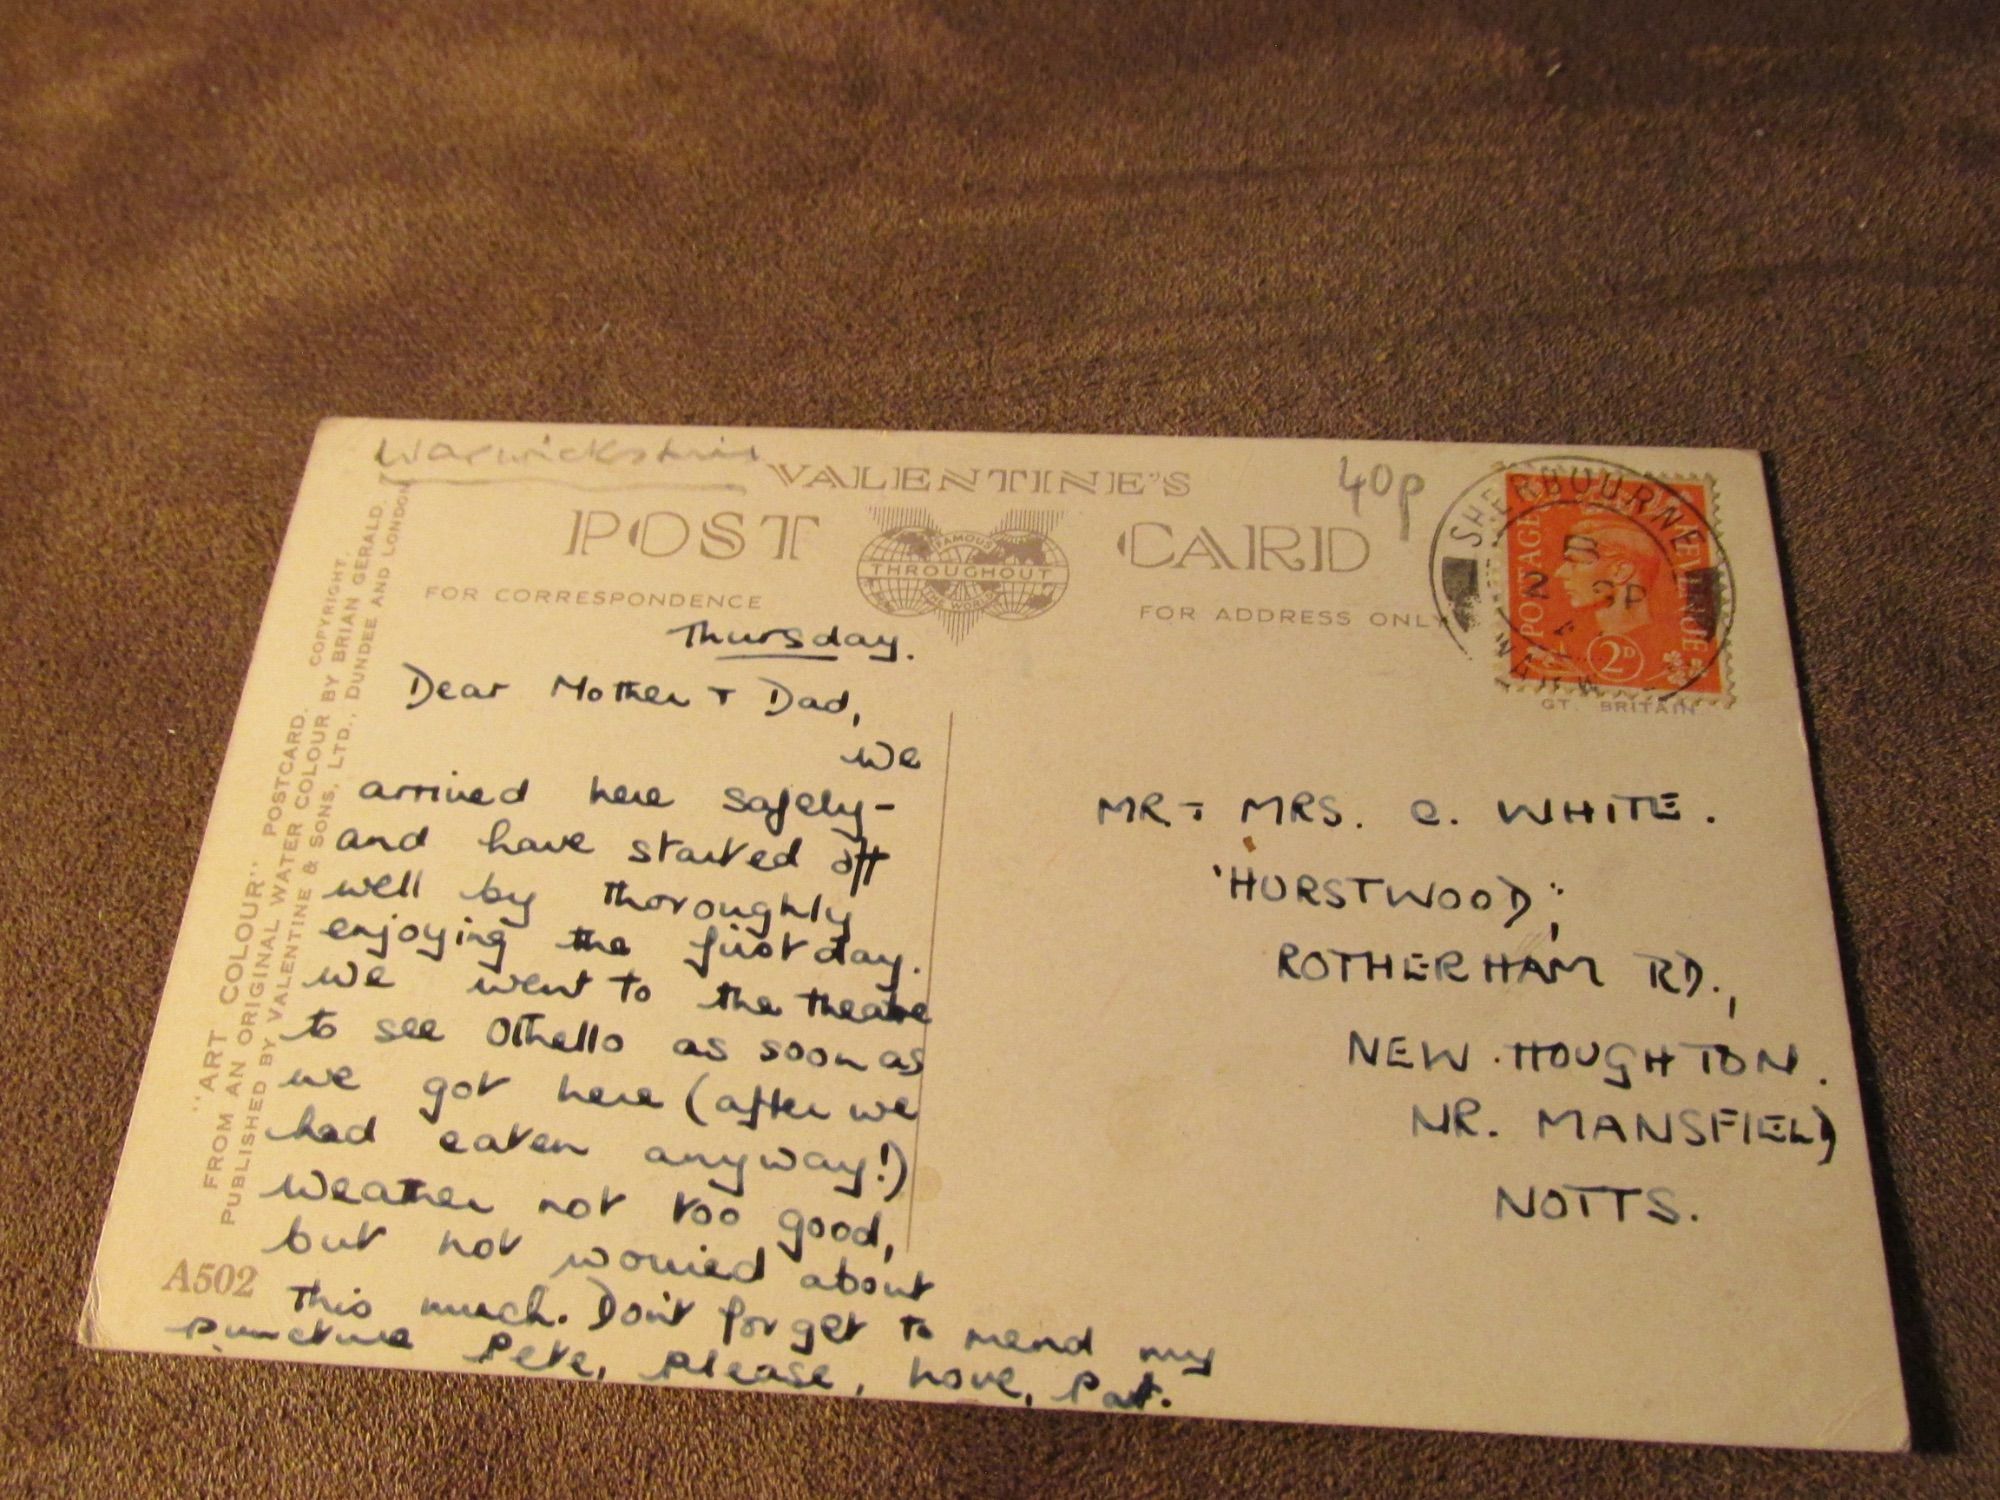 Warwickshire
VALENTINE'S
40p
POST CARD
FAMOUS
THROUGHOUT
THE WORLD
FOR CORRESPONDENCE
FOR ADDRESS ONLY
SHERBOURNE
POSTAGE
REVENUE
2 SP
2D
GT. BRITAIN
"ART COLOUR"
FROM AN ORIGINAL WATER COLOUR BY BRIAN GERALD.
PUBLISHED BY VALENTINE & SONS, LTD., DUNDEE AND LONDON
POSTCARD.
COPYRIGHT.
A502
Thursday.
Dear Mother + Dad,
We
arrived here safely-
and have started off
well by thoroughly
enjoying the first day.
We went to the theatre
to see Othello as soon as
we got here (after we
had eaten anyway!)
Weather not too good,
but not worried about
this much. Don't forget to mend my
puncture Pete, please, love, Pat.
MR. + MRS. C. WHITE.
'HURSTWOOD',
ROTHERHAM RD.,
NEW HOUGHTON.
NR. MANSFIELD
NOTTS.